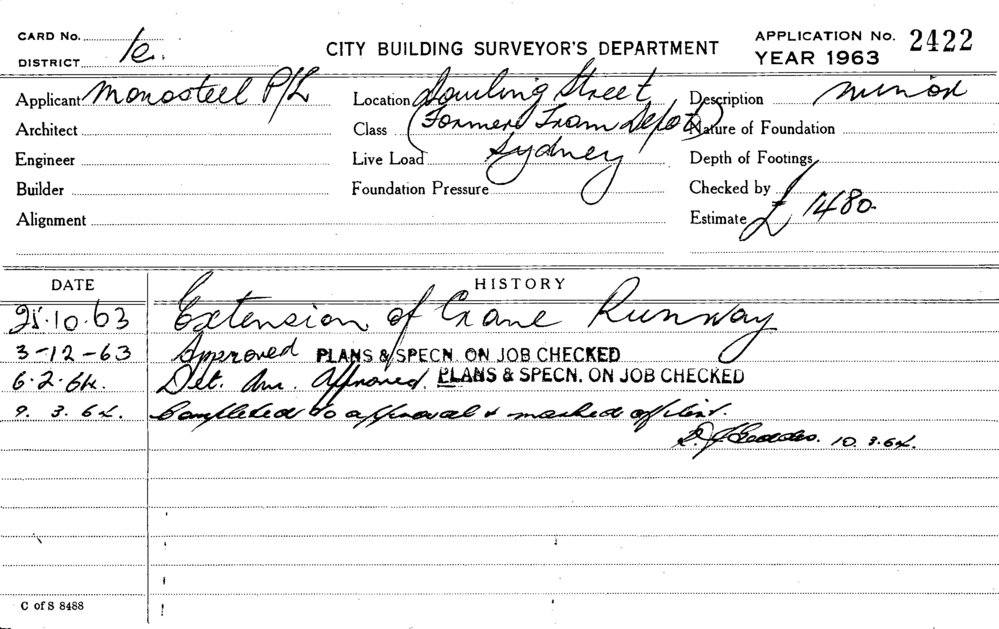 CARD No.
DISTRICT 1c.
CITY BUILDING SURVEYOR'S DEPARTMENT
APPLICATION No. 2422
YEAR 1963
Applicant Monosteel P/L
Location Dowling Street
Description minor
Architect
Class (Former Tram Depot)
Nature of Foundation
Engineer
Live Load Sydney
Depth of Footings
Builder
Foundation Pressure
Checked by
Alignment
Estimate £1480.
DATE
HISTORY
25.10.63 Extension of Crane Runway
3-12-63 Approved PLANS & SPECN. ON JOB CHECKED
6.2.64. Det. Approved. PLANS & SPECN. ON JOB CHECKED
9. 3. 64. Completed to approval & marked off list.
10.3.64.
C of S 8488